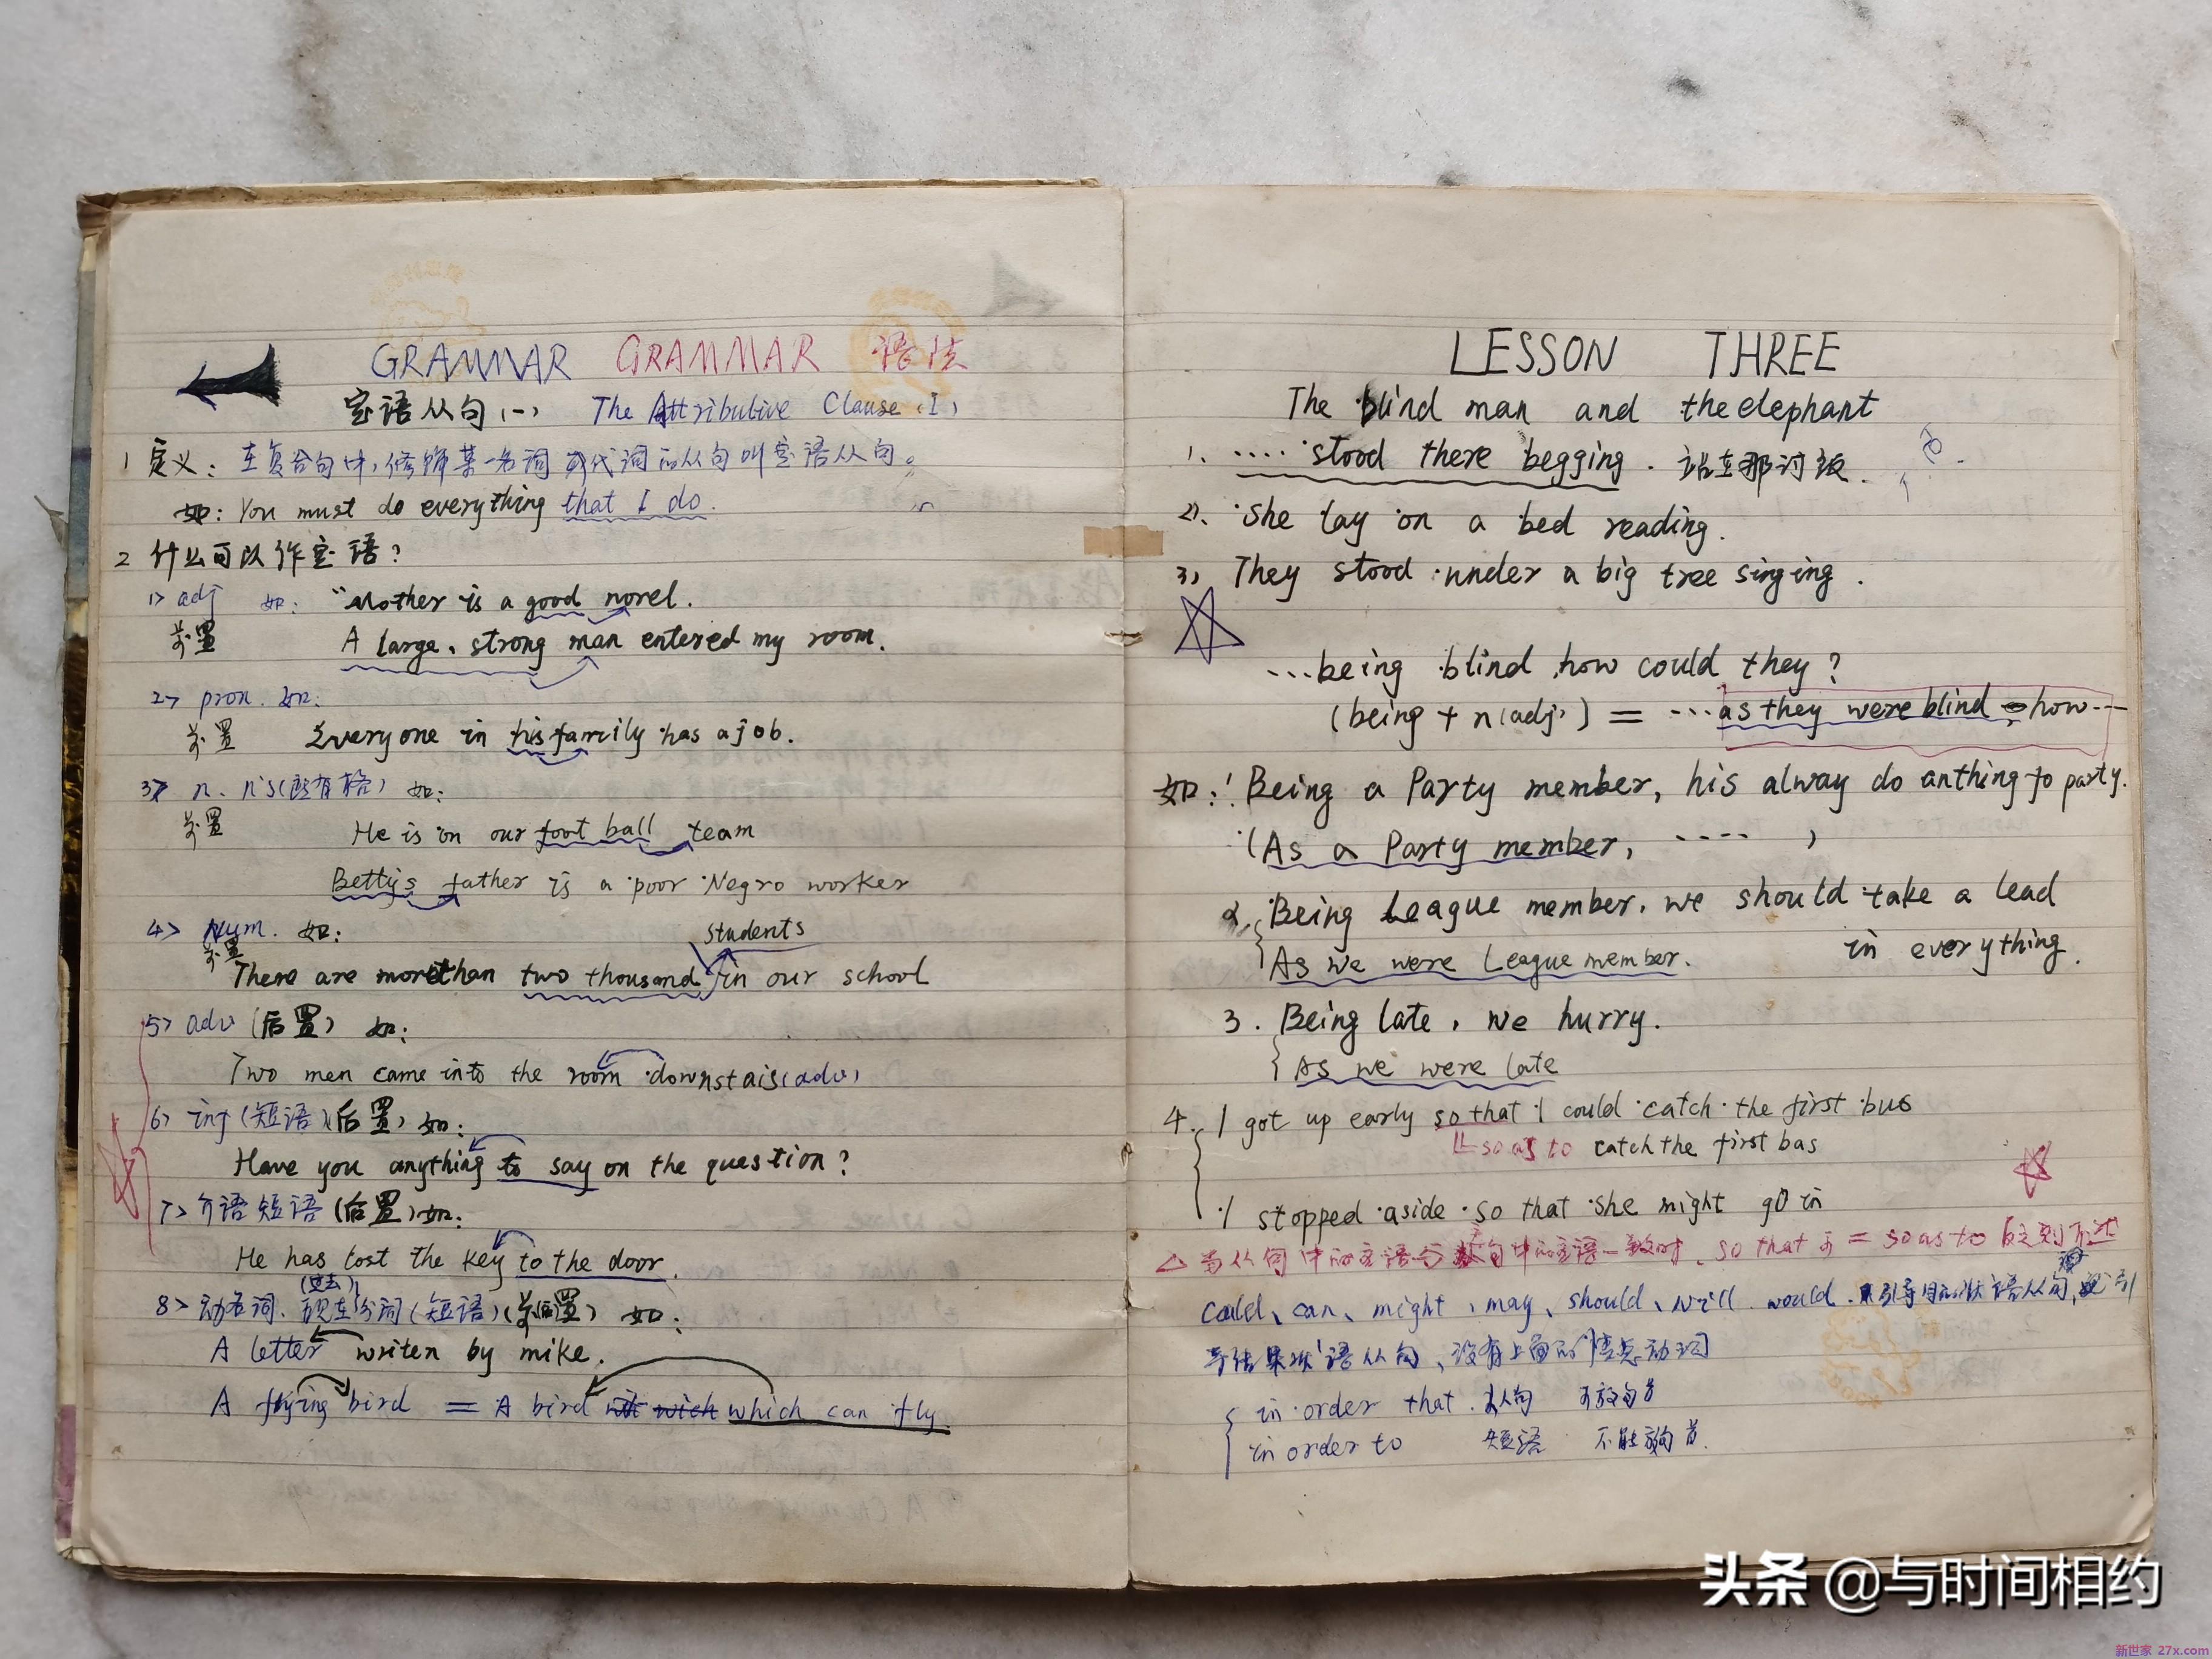 GRAMMAR GRAMMAR 语法
定语从句(一) The Attributive Clause (I)
1 定义：在复合句中，修饰某一名词或代词的从句叫定语从句。
如：You must do everything that I do.
2 什么可以作定语？
1> adj 如： "Mother is a good novel.
前置 A large、strong man entered my room.
2> pron. 如：
前置 Everyone in his family has a job.
3> n. n's(所有格) 如：
前置 He is on our foot ball team
Betty's father is a poor Negro worker
4> Num. 如： students
前置
There are more than two thousand in our school
5> adv (后置) 如：
Two men came into the room downstais(adv)
6> inf (短语)(后置) 如：
Have you anything to say on the question?
7> 介语短语 (后置) 如：
He has lost the key to the door.
(过去)
8> 动名词、现在分词(短语)(前后置) 如：
A letter writen by mike.
A flying bird = A bird which can fly.
LESSON THREE
The blind man and the elephant
1. ····stood there begging. 站在那讨饭.
2). She lay on a bed reading.
3) They stood under a big tree singing.
...being blind, how could they?
(being + n(adj)) = ···as they were blind, how···
如：1. Being a Party member, his alway do anthing to party.
(As a Party member, ···· )
2. Being League member, we should take a lead
in everything.
As we were League member.
3. Being late, we hurry.
As we were late
4. I got up early so that I could catch the first bus
so as to catch the first bas
I stopped aside so that she might go in
△ 当从句中的主语与主句中的主语一致时, so that 可 = so as to 否则不达
could、can、might、may、should、will、would. 引导目的状语从句, 引
导结果状语从句、没有上面的情态动词
in order that 从句 可放句首
in order to 短语 不能放句首.
头条 @与时间相约
新世家 27x.com